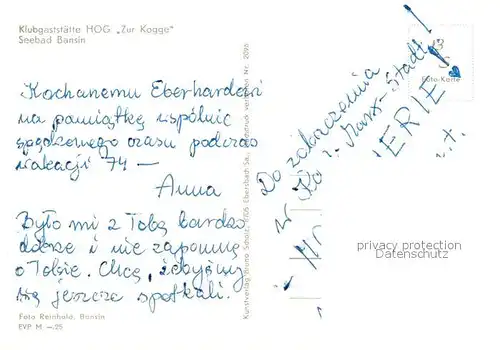 Klubgaststätte HOG „Zur Kogge"
Seebad Bansin
Kochanemu Eberhardowi
na pamiątkę wspólnie
spędzonego czasu podczas
wakacji 74 —
Anna
Było mi z Tobą bardzo
dobrze i nie zapomnę
o Tobie. Chcę, żebyśmy
się jeszcze spotkali.
Foto Reinhold, Bansin
EVP M —.25
Kunstverlag Bruno Scholz, 8705 Ebersbach Sa.
Nr. 2096
Do zobaczenia
w K. Marx-Stadt!
Foto-Karte
privacy protection
Datenschutz